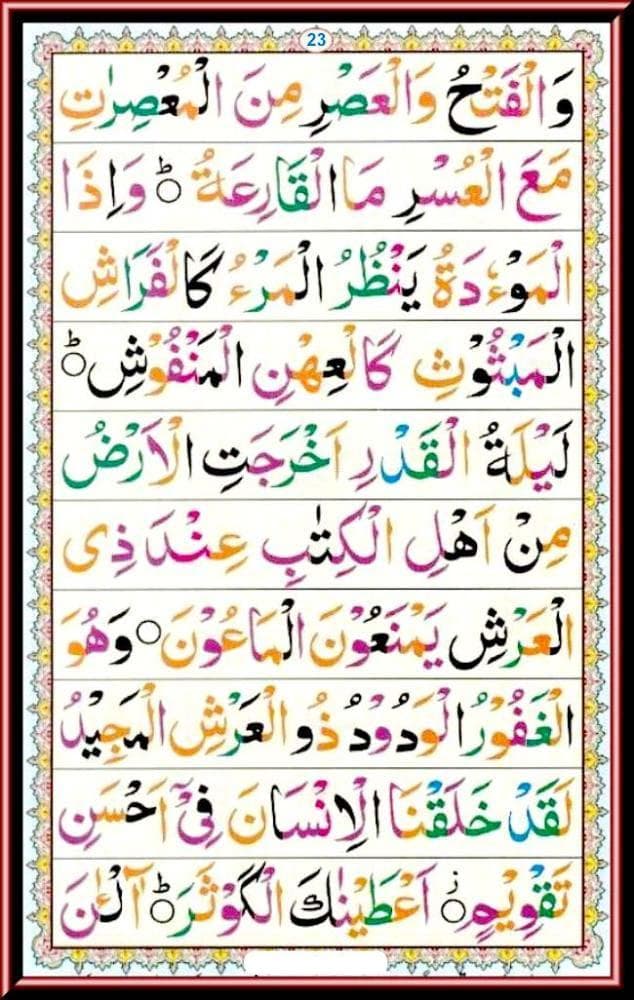 23
وَالْفَتْحُ وَالْعَصْرِ مِنَ الْمُعْصِرٰتِ
مَعَ الْعُسْرِ مَا الْقَارِعَةُ ؕ وَاِذَا
الْمَوْءٗدَةُ يَنْظُرُ الْمَرْءُ كَالْفَرَاشِ
الْمَبْثُوْثِ كَالْعِهْنِ الْمَنْفُوْشِ ؕ
لَيْلَةُ الْقَدْرِ اَخْرَجَتِ الْاَرْضُ
مِنْ اَهْلِ الْكِتٰبِ عِنْدَ ذِى
الْعَرْشِ يَمْنَعُوْنَ الْمَاعُوْنَ ○ وَهُوَ
الْغَفُوْرُ الْوَدُوْدُ ذُو الْعَرْشِ الْمَجِيْدُ
لَقَدْ خَلَقْنَا الْاِنْسَانَ فِىْٓ اَحْسَنِ
تَقْوِيْمٍ ○ز اَعْطَيْنٰكَ الْكَوْثَرَ ؕ آلْـٰٔنَ